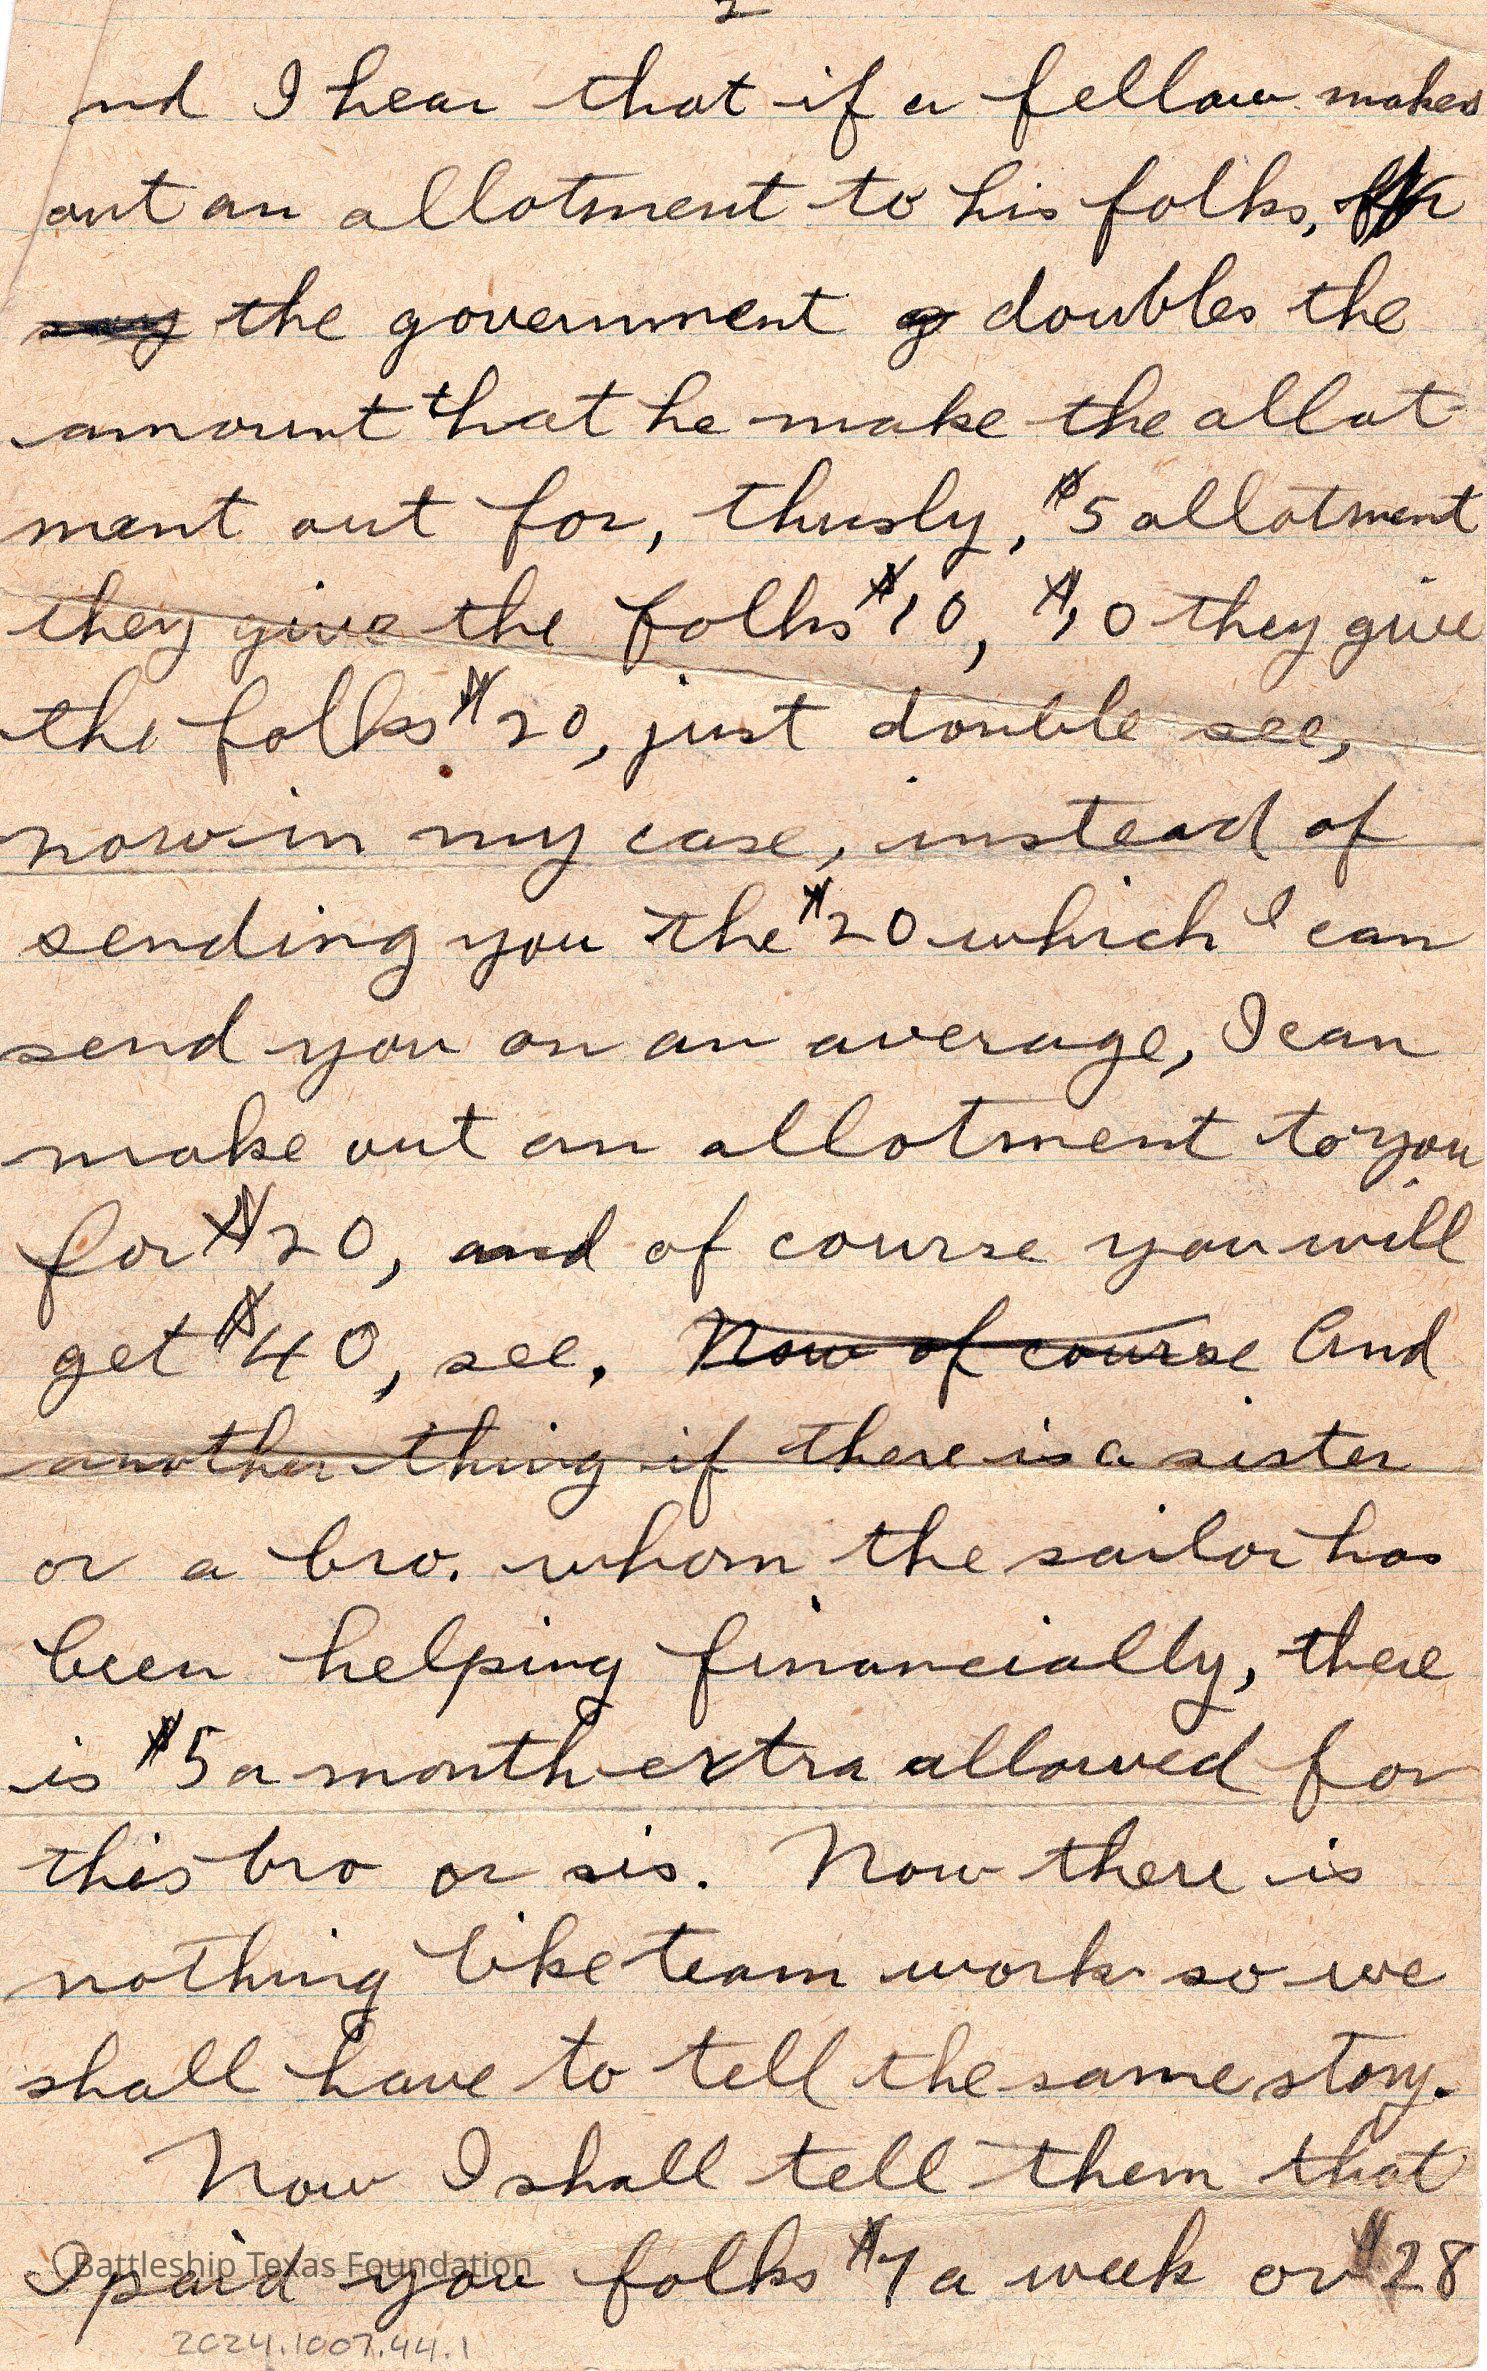 2
nd I hear that if a fellow makes
out an allotment to his folks,
say the government g doubles the
amount that he make the allot
ment out for, thusly, $5 allotment
they give the folks $10, $10 they give
the folks $20, just double see,
now in my case, instead of
sending you the $20 which I can
send you on an average, I can
make out an allotment to you
for $20, and of course you will
get $40, see. Now of course And
another thing if there is a sister
or a bro. whom the sailor has
been helping financially, there
is $5 a month extra allowed for
this bro or sis. Now there is
nothing like team work so we
shall have to tell the same story.
Now I shall tell them that
I paid you folks $7 a week or $28
Battleship Texas Foundation
2024.1007.44.1